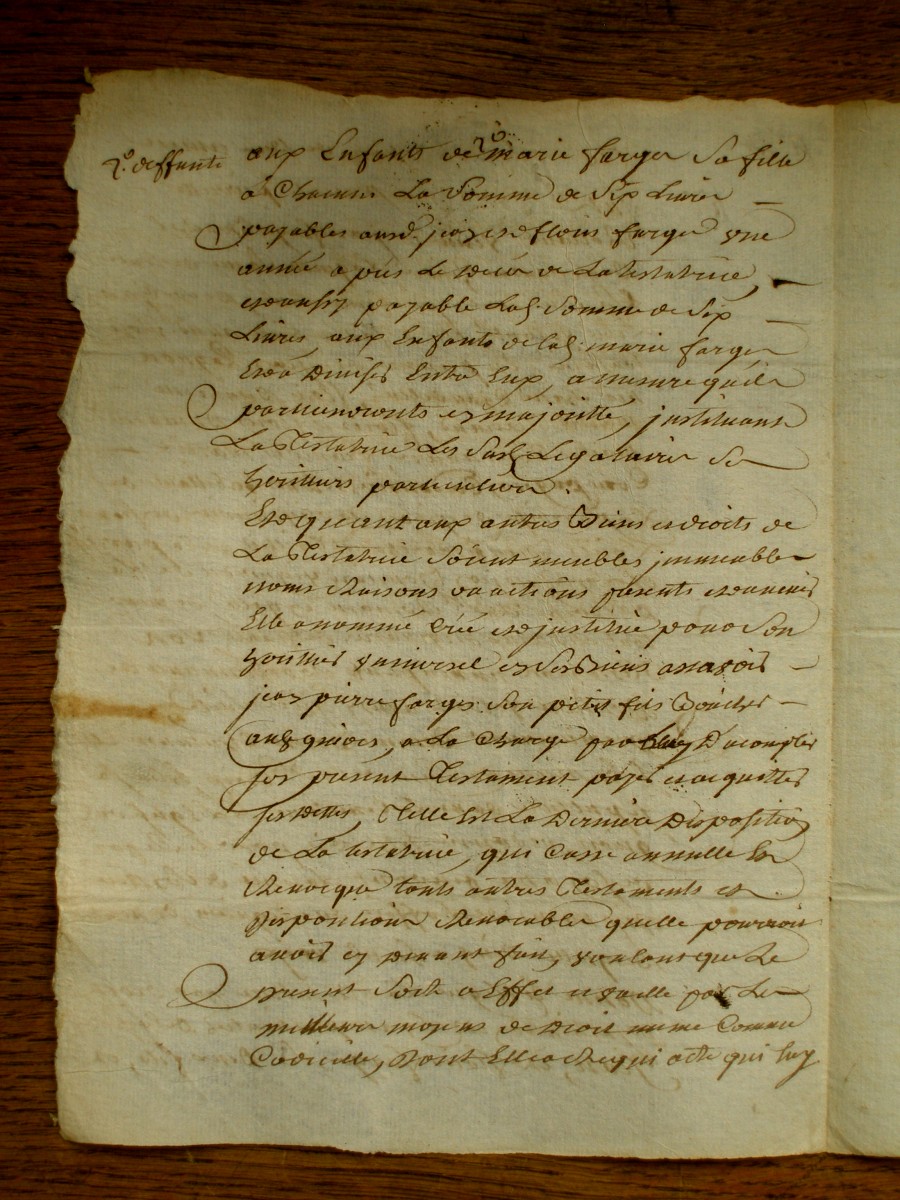 deffunte
aux Enfants de marie farges sa fille
a Chacun La Somme de Six Livres
payables aud. et flour farges une
année apres Le deces de La testatrice,
et aussy payable Lad. Somme de Six
Livres, aux Enfants de lad. marie farges
Et a Divisés Entre Eux, a mesure quils
parviendronts en majoritté, justituant
La Testatrice Les Sus Legataires Ses
heritiers particuliers.
Et quant aux autres Biens et droits de
La Testatrice Soient meubles jmmeubles
noms Raisons ou actions presents et avenir
Elle a nommé Créé et justitué pour Son
heritier universel en Ses Biens assavoir
jean pierre farges Son petit fils
a La Charge par luy D'acomplir
Son present Testament payer et acquitter
ses Dettes, Telle Est La Derniere Disposition
de La testatrice, qui Casse annulle Et
Revocque touts autres Testaments et
Dispositions Revocables quelle pourroit
avoir cy devant fait, voulant que Le
present Sorte a Effet et vaille par Les
meilleurs moyens de Droit meme Comme
Codicille, Dont Elle a Requi acte qui luy